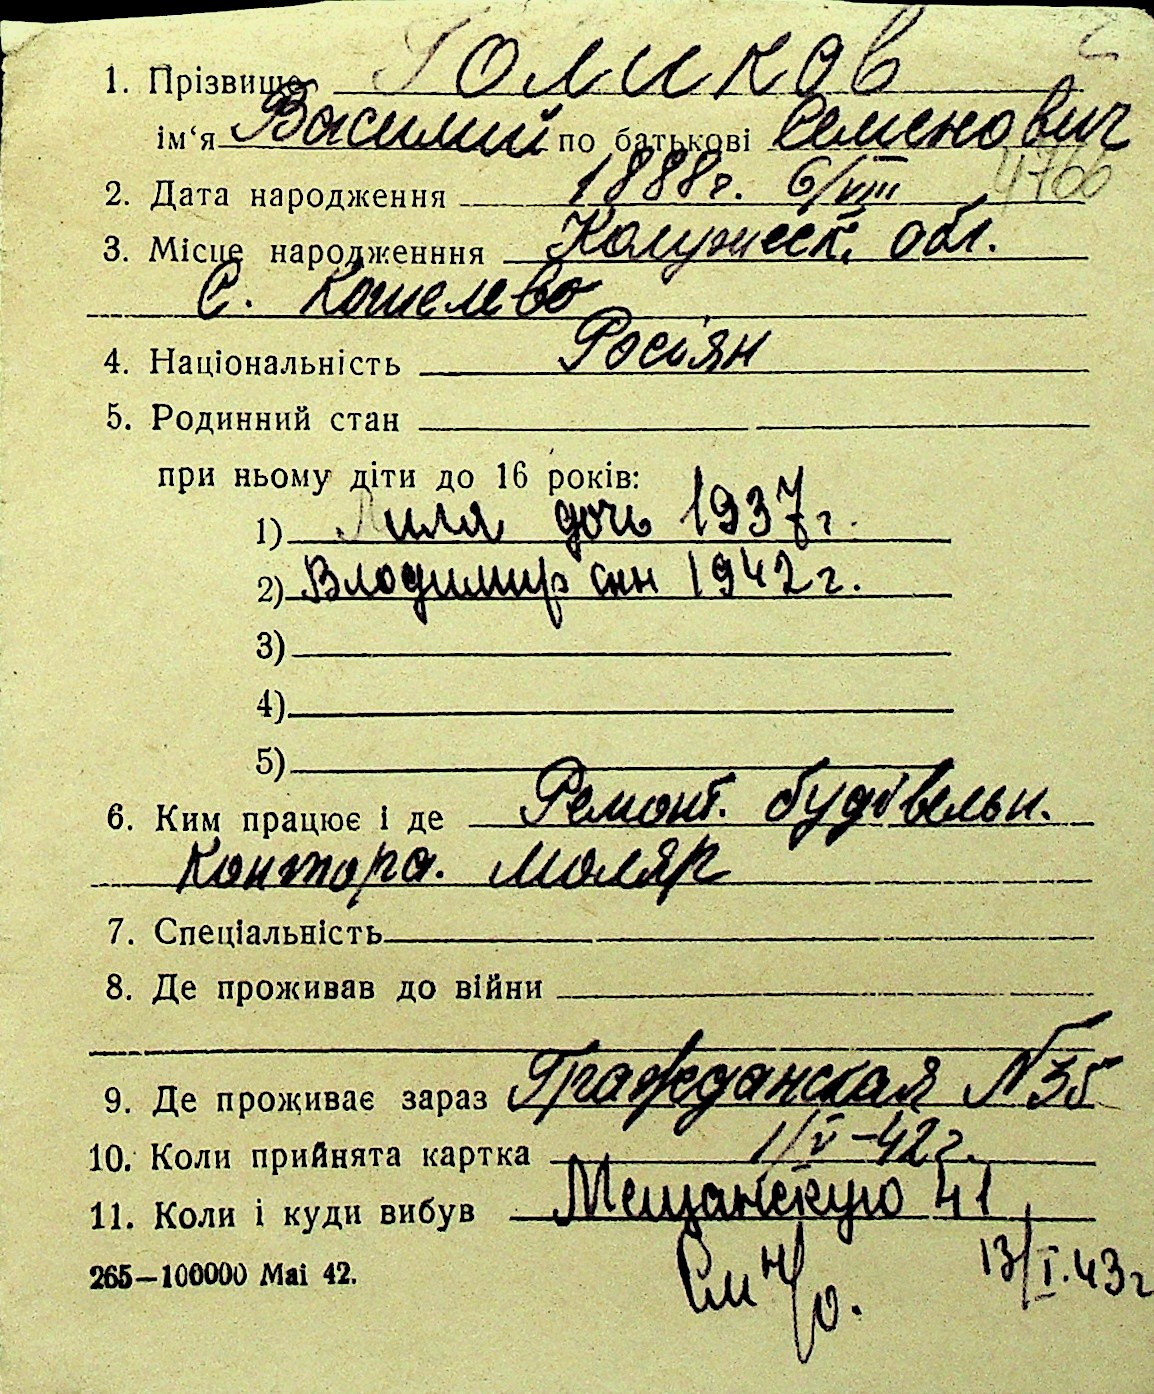 1. Прізвище Голиков
ім‘я Василий по батькові Семенович
4766
2. Дата народження 1888г. 6/VIII
3. Місце народженння Калужеск. обл.
С. Кошелево
4. Національність Росіян
5. Родинний стан
при ньому діти до 16 років:
1) Лиля дочь 1937г.
2) Владимир сын 1942г.
3)
4)
5)
6. Ким працює і де Ремонт. будівельн.
Контора. маляр
7. Спеціальність
8. Де проживав до війни
9. Де проживає зараз Гражданская №35
10. Коли прийнята картка 1/V-42г.
11. Коли і куди вибув Мещанскую 41
265—100000 Маі 42. См н/о. 13/I.43г